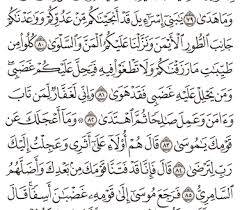 وَمَا هَدَىٰ ٧٩ يَٰبَنِىٓ إِسْرَٰٓءِيلَ قَدْ أَنجَيْنَٰكُم مِّنْ عَدُوِّكُمْ وَوَٰعَدْنَٰكُمْ
جَانِبَ ٱلطُّورِ ٱلْأَيْمَنَ وَنَزَّلْنَا عَلَيْكُمُ ٱلْمَنَّ وَٱلسَّلْوَىٰ ٨٠ كُلُوا۟ مِن
طَيِّبَٰتِ مَا رَزَقْنَٰكُمْ وَلَا تَطْغَوْا۟ فِيهِ فَيَحِلَّ عَلَيْكُمْ غَضَبِى
وَمَن يَحْلِلْ عَلَيْهِ غَضَبِى فَقَدْ هَوَىٰ ٨١ وَإِنِّى لَغَفَّارٌ لِّمَن تَابَ
وَءَامَنَ وَعَمِلَ صَٰلِحًا ثُمَّ ٱهْتَدَىٰ ٨٢ وَمَآ أَعْجَلَكَ عَن
قَوْمِكَ يَٰمُوسَىٰ ٨٣ قَالَ هُمْ أُو۟لَآءِ عَلَىٰٓ أَثَرِى وَعَجِلْتُ إِلَيْكَ
رَبِّ لِتَرْضَىٰ ٨٤ قَالَ فَإِنَّا قَدْ فَتَنَّا قَوْمَكَ مِنۢ بَعْدِكَ وَأَضَلَّهُمُ
ٱلسَّامِرِىُّ ٨٥ فَرَجَعَ مُوسَىٰٓ إِلَىٰ قَوْمِهِۦ غَضْبَٰنَ أَسِفًا قَالَ